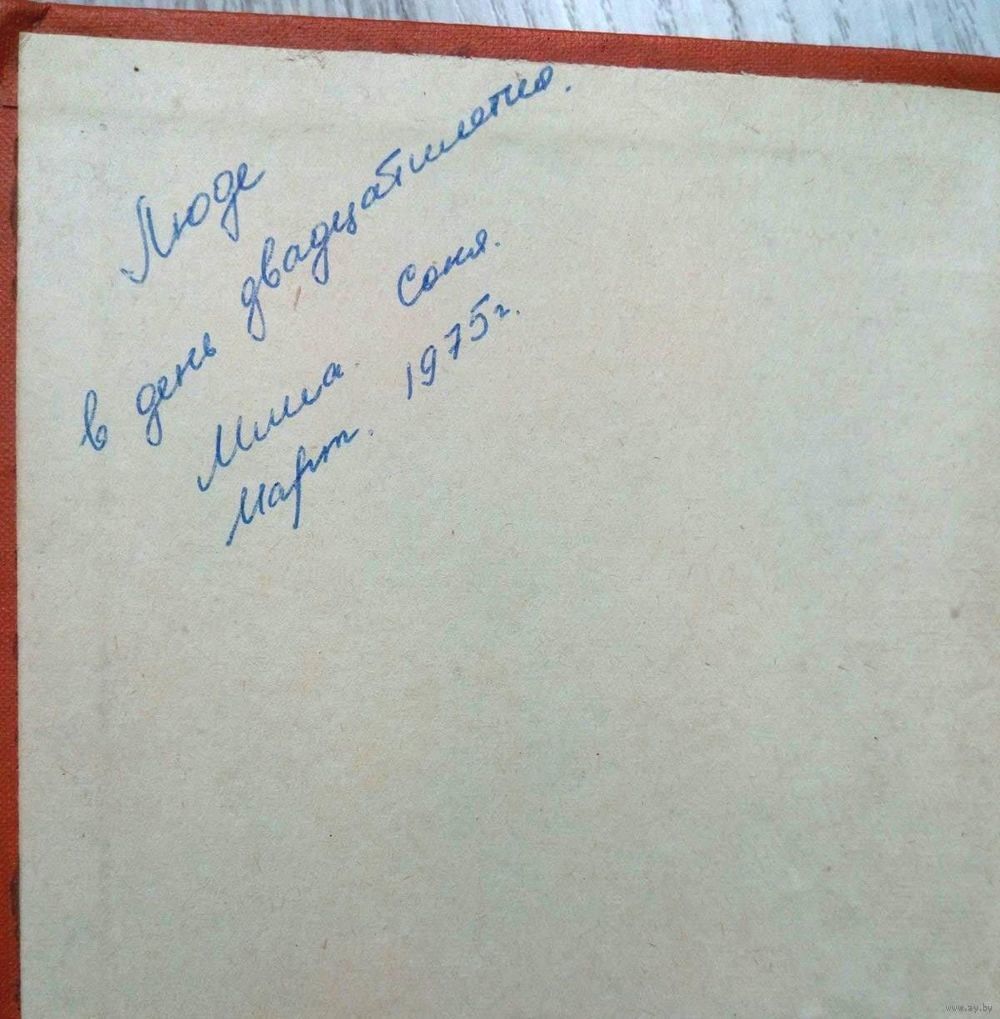 Люде
в день двадцатилетия.
Миша. Соня.
Март. 1975г.
www.ay.by